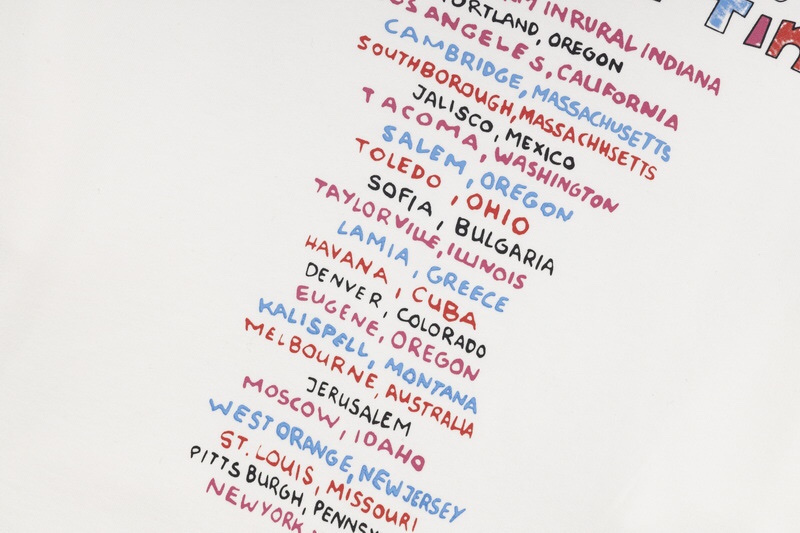 Tin
IN RURAL INDIANA
PORTLAND, OREGON
LOS ANGELES, CALIFORNIA
CAMBRIDGE, MASSACHUSETTS
SOUTHBOROUGH, MASSACHHSETTS
JALISCO, MEXICO
TACOMA, WASHINGTON
SALEM, OREGON
TOLEDO, OHIO
SOFIA, BULGARIA
TAYLORVILLE, ILLINOIS
LAMIA, GREECE
HAVANA, CUBA
DENVER, COLORADO
EUGENE, OREGON
KALISPELL, MONTANA
MELBOURNE, AUSTRALIA
JERUSALEM
MOSCOW, IDAHO
WEST ORANGE, NEW JERSEY
ST. LOUIS, MISSOURI
PITTSBURGH, PENNSY
NEW YORK